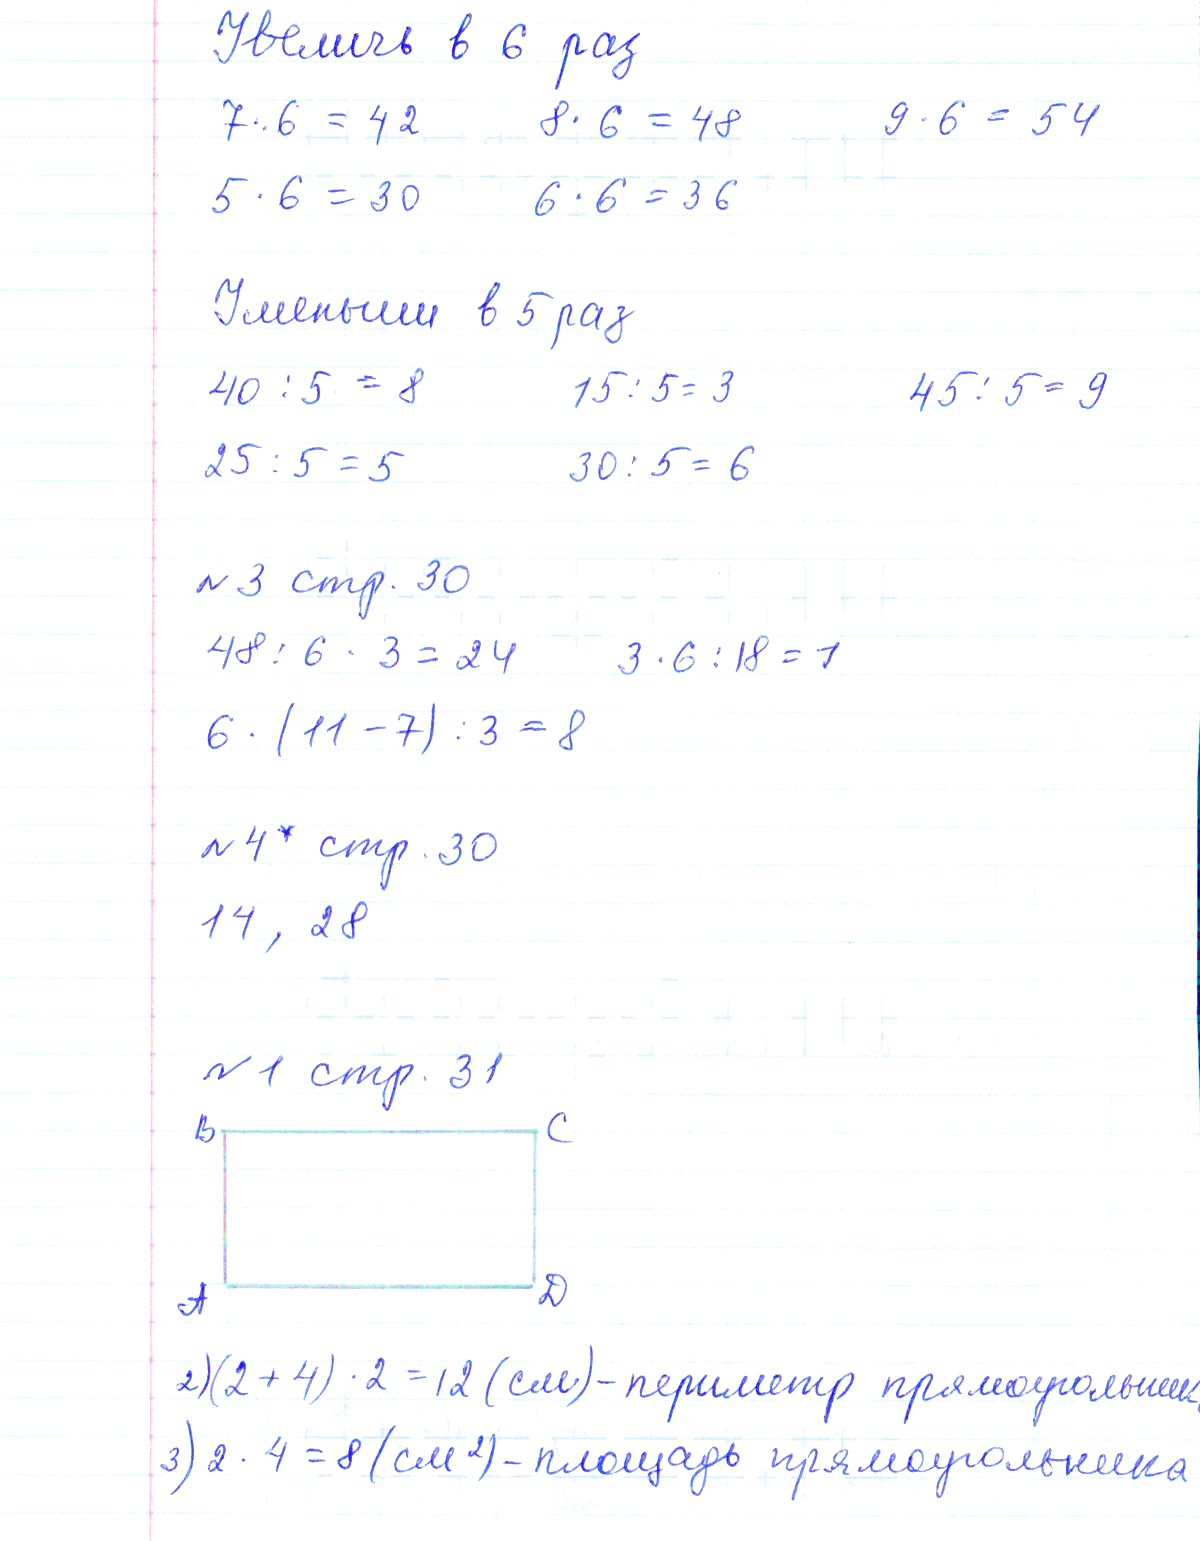 Увеличь в 6 раз
7·6 = 42 8·6 = 48 9·6 = 54
5·6 = 30 6·6 = 36
Уменьши в 5 раз
40:5 = 8 15:5 = 3 45:5 = 9
25:5 = 5 30:5 = 6
№3 стр. 30
48:6·3 = 24 3·6:18 = 1
6·(11-7):3 = 8
№4* стр. 30
14, 28
№1 стр. 31
B C
A D
2)(2+4)·2 = 12 (см) - периметр прямоугольник
3) 2·4 = 8 (см²) - площадь прямоугольника